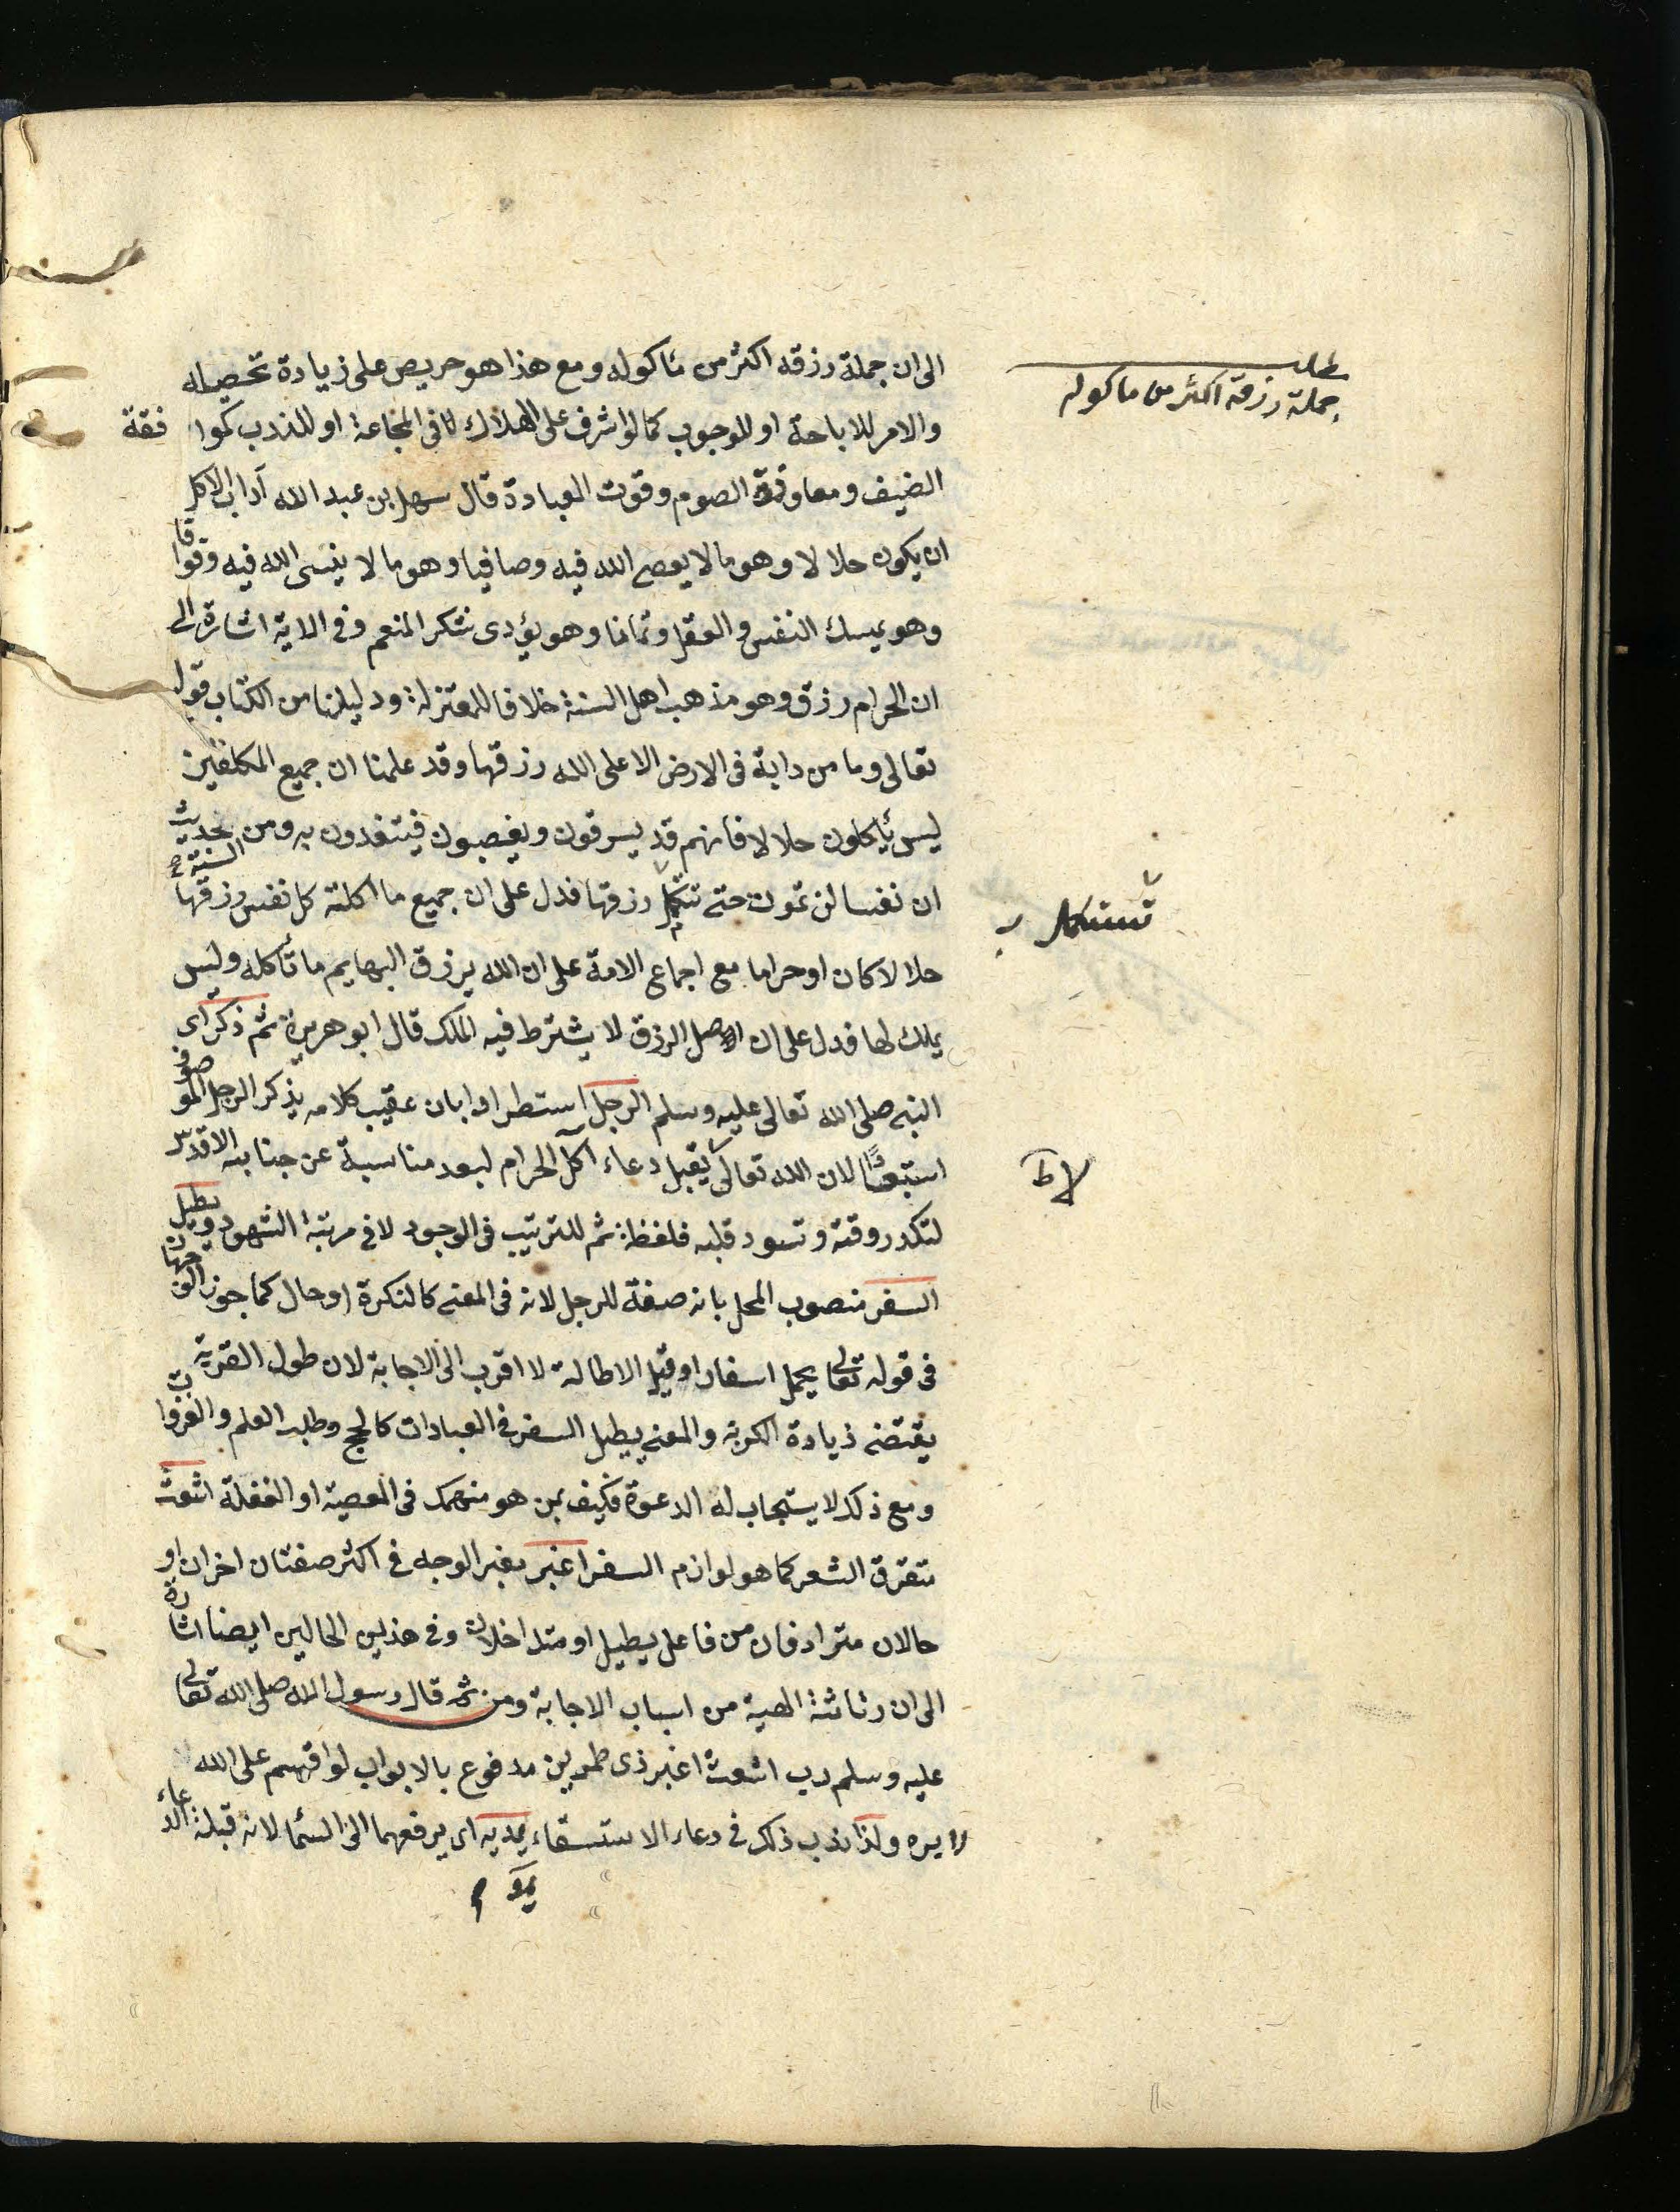 الى ان جملة رزقه اكثر من مأكوله ومع هذا هو حريص على زيادة تحصيله
والامر للاباحة او للوجوب كما لو اشرف على الهلاك لا فى المجاعة او للندب كموافقة
الضيف ومعاونة الصوم وقوت العبادة قال سهل بن عبد الله آداب الاكل
ان يكون حلالا وهو ما لا يعصى الله فيه وصافيا وهو ما لا ينسى الله فيه وقواما
وهو يمسك النفس والعقل وهو يؤدى شكر المنعم وفى الاية اشارة الى
ان الحرام رزق وهو مذهب اهل السنة خلافا للمعتزلة ودليلنا من الكتاب قوله
تعالى وما من دابة فى الارض الا على الله رزقها وقد علمنا ان جميع المكلفين
ليس يأكلون حلالا فانهم قد يسرقون ويغصبون فيتغذون به ومن السنة حديث
ان نفسا لن تموت حتى تستكمل رزقها فدل على ان جميع ما اكلته كل نفس رزقها
حلالا كان او حراما مع اجماع الامة على ان الله يرزق البهايم ما تأكله وليس
يملك لها فدل على ان اصل الرزق لا يشترط فيه الملك قال ابو هريرة ثم ذكر اى
النبى صلى الله تعالى عليه وسلم الرجل استطرادا بان عقيب كلامه بذكر الرجل الموصوف
استبعادا لان الله تعالى لا يقبل دعاء آكل الحرام لبعد مناسبة عن جنابه الاقدس
لتكدر وقته وتسود قلبه فلفظة ثم للترتيب فى الوجود لا فى مرتبة الشهود ويطيل
السفر منصوب المحل بانه صفة للرجل لانه فى المعنى كالنكرة او حال كما جوز الوجهان
فى قوله تعالى يحمل اسفارا وقيل الاطالة لا اقرب الى الاجابة لان طول الغربة
يقتضى زيادة الكربة والمعنى يطيل السفر فى العبادات كالحج وطلب العلم والغزوات
ومع ذلك لا يستجاب له الدعوة فكيف بمن هو منهمك فى المعصية او الغفلة اشعث
متفرق الشعر كما هو لوازم السفر اغبر مغبر الوجه فى اكثر صفتان اخران او
حالان مترادفان من فاعل يطيل او متداخلان وفى هذين الحالين ايضا اشارة
الى ان رثاثة الهيئة من اسباب الاجابة ومن ثم قال رسول الله صلى الله تعالى
عليه وسلم رب اشعث اغبر ذى طمرين مدفوع بالابواب لو اقسم على الله
لابره ولذا ندب ذلك فى دعاء الاستسقاء يمد يديه اى يرفعهما الى السماء لانه قبلة الدعاء
مطلب
جملة رزقه اكثر من ماكوله
تستكمل
لا ط